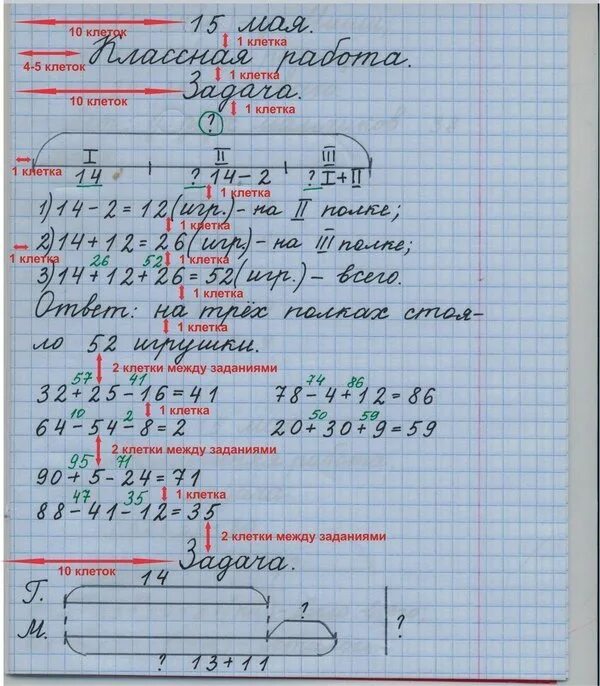 10 клеток 15 мая.
1 клетка
4-5 клеток Классная работа.
1 клетка
10 клеток Задача.
1 клетка
?
I II III
1 клетка 14 ? 14-2 ? I+II
1 клетка
1) 14-2=12(игр.)- на II полке;
1 клетка
2) 14+12=26(игр.)- на III полке;
1 клетка 26 52 1 клетка
3) 14+12+26=52(игр.)- всего.
1 клетка
Ответ: на трёх полках стоя-
1 клетка
ло 52 игрушки.
2 клетки между заданиями
57 41 74 86
32+25-16=41 78-4+12=86
1 клетка
10 2 50 59
64-54-8=2 20+30+9=59
2 клетки между заданиями
95 71
90+5-24=71
1 клетка
47 35
88-41-12=35
2 клетки между заданиями
Задача.
10 клеток
14
Г.
?
М. ?
? 13+11